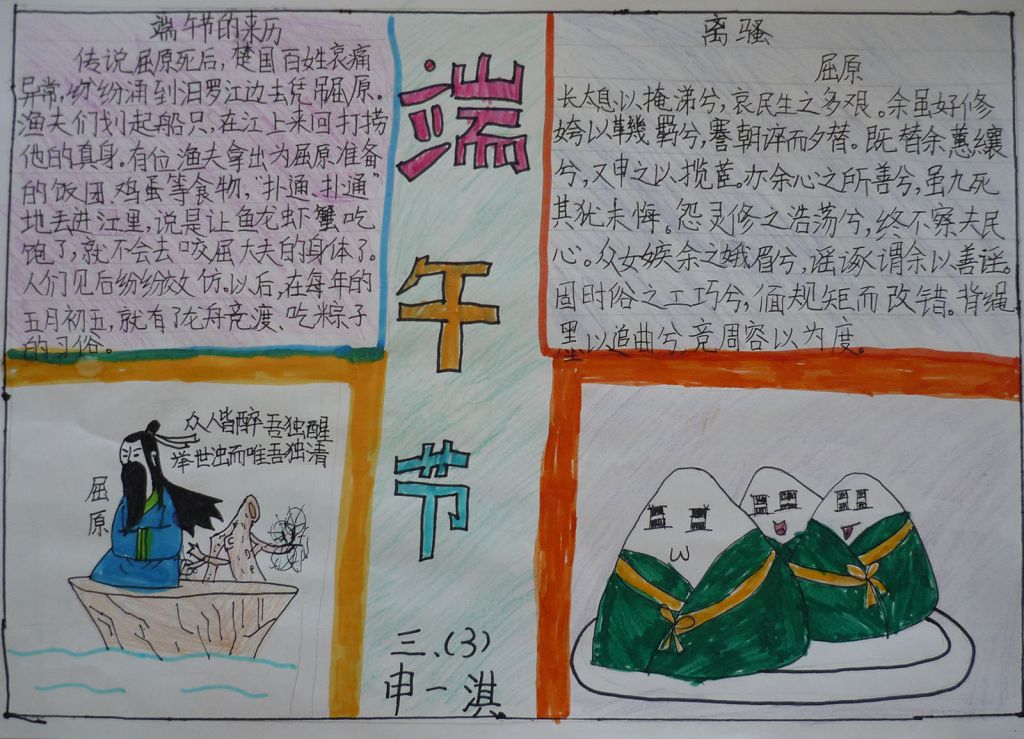 端午节的来历
传说屈原死后，楚国百姓哀痛
异常，纷纷涌到汨罗江边去凭吊屈原。
渔夫们划起船只，在江上来回打捞
他的真身。有位渔夫拿出为屈原准备
的饭团、鸡蛋等食物，“扑通、扑通”
地丢进江里，说是让鱼龙虾蟹吃
饱了，就不会去咬屈大夫的身体了。
人们见后纷纷效仿。以后，在每年的
五月初五，就有了龙舟竞渡、吃粽子
的习俗。
端午节
离骚
屈原
长太息以掩涕兮，哀民生之多艰。余虽好修
姱以鞿羁兮，謇朝谇而夕替。既替余蕙纕
兮，又申之以揽茝。亦余心之所善兮，虽九死
其犹未悔。怨灵修之浩荡兮，终不察夫民
心。众女嫉余之娥眉兮，谣诼谓余以善淫。
固时俗之工巧兮，偭规矩而改错。背绳
墨以追曲兮，竞周容以为度。
众人皆醉吾独醒
举世浊而唯吾独清
屈原
三.(3)
申一淇